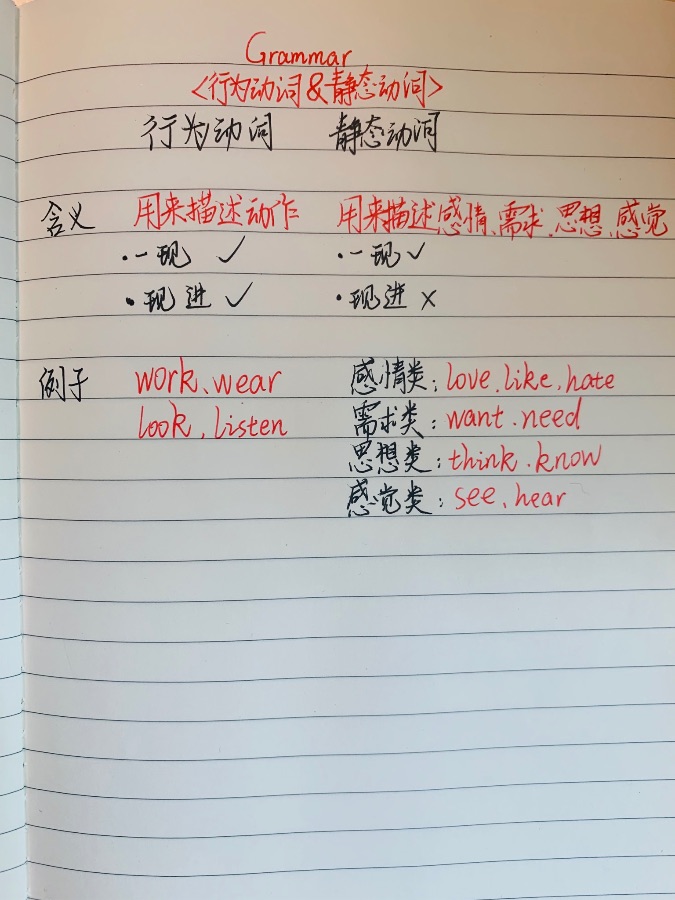 Grammar
<行为动词&静态动词>
行为动词 静态动词
含义 用来描述动作 用来描述感情、需求、思想、感觉
·一现 ✓ ·一现 ✓
·现进 ✓ ·现进 ×
例子 work、wear 感情类:love、like、hate
look、listen 需求类:want、need
思想类:think、know
感觉类:see、hear